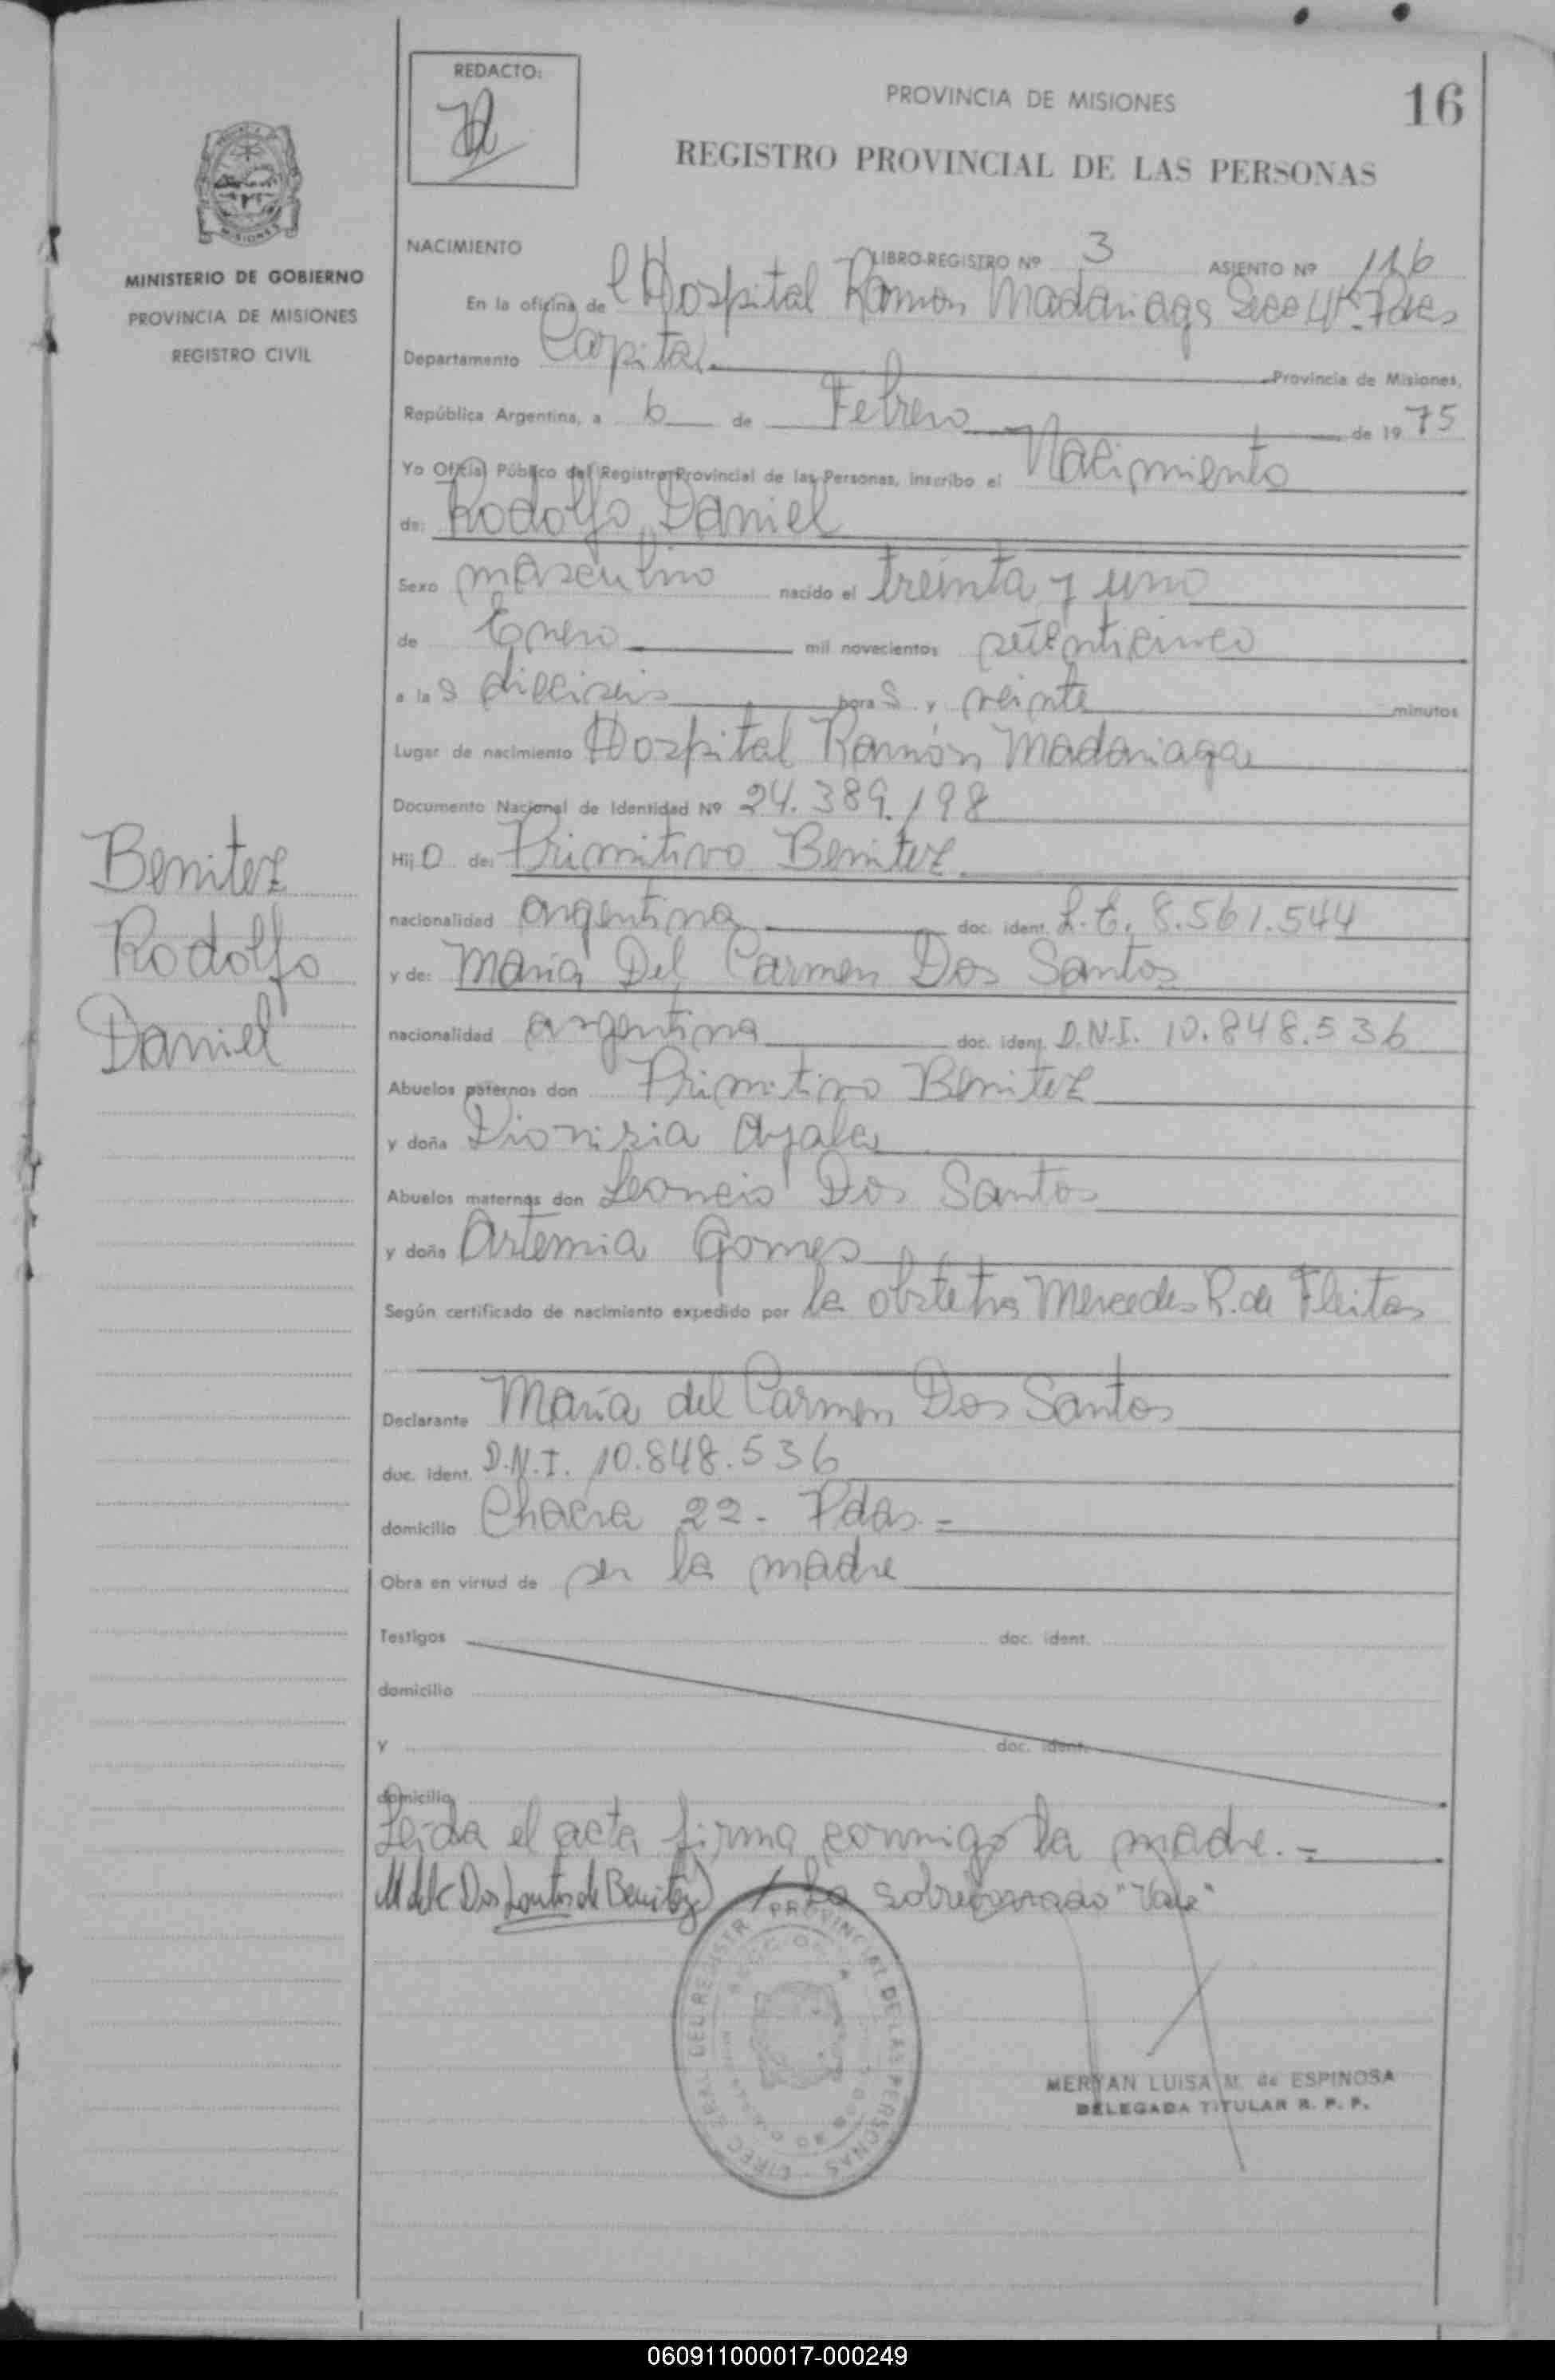 REDACTO:
PROVINCIA DE MISIONES
16
REGISTRO PROVINCIAL DE LAS PERSONAS
MISIONES
MINISTERIO DE GOBIERNO
PROVINCIA DE MISIONES
REGISTRO CIVIL
NACIMIENTO LIBRO-REGISTRO Nº 3 ASIENTO Nº 116
En la oficina de l Hospital Ramon Madariaga Secc 4ta. Pdas
Departamento Capital Provincia de Misiones,
República Argentina, a 6 de Febrero de 1975
Yo Oficial Público del Registro Provincial de las Personas, inscribo el Nacimiento
de: Rodolfo Daniel
Sexo masculino nacido el treinta y uno
de Enero mil novecientos setenticinco
a las dieciseis horas y veinte minutos
Lugar de nacimiento Hospital Ramón Madariaga
Documento Nacional de Identidad Nº 24.389.198
Hijo de: Primitivo Benitez
nacionalidad argentina doc. ident. L.E. 8.561.544
y de: Maria Del Carmen Dos Santos
nacionalidad argentina doc. ident. D.N.I. 10.848.536
Abuelos paternos don Primitivo Benitez
y doña Dionisia Ayala
Abuelos maternos don Leoncio Dos Santos
y doña Artemia Gomes
Según certificado de nacimiento expedido por la obstetra Mercedes R. de Fleitas
Declarante Maria del Carmen Dos Santos
doc. ident. D.N.I. 10.848.536
domicilio Chacra 22 - Pdas =
Obra en virtud de ser la madre
Testigos doc. ident.
domicilio
y doc. ident.
domicilio
Leida el acta firma conmigo la madre. =
M del C Dos Santos de Benitez / Lo sobreborrado "Vale"
Benitez
Rodolfo
Daniel
PROVINCIAL DE LAS PERSONAS
MERYAN LUISA M. de ESPINOSA
DELEGADA TITULAR R. P. P.
060911000017-000249